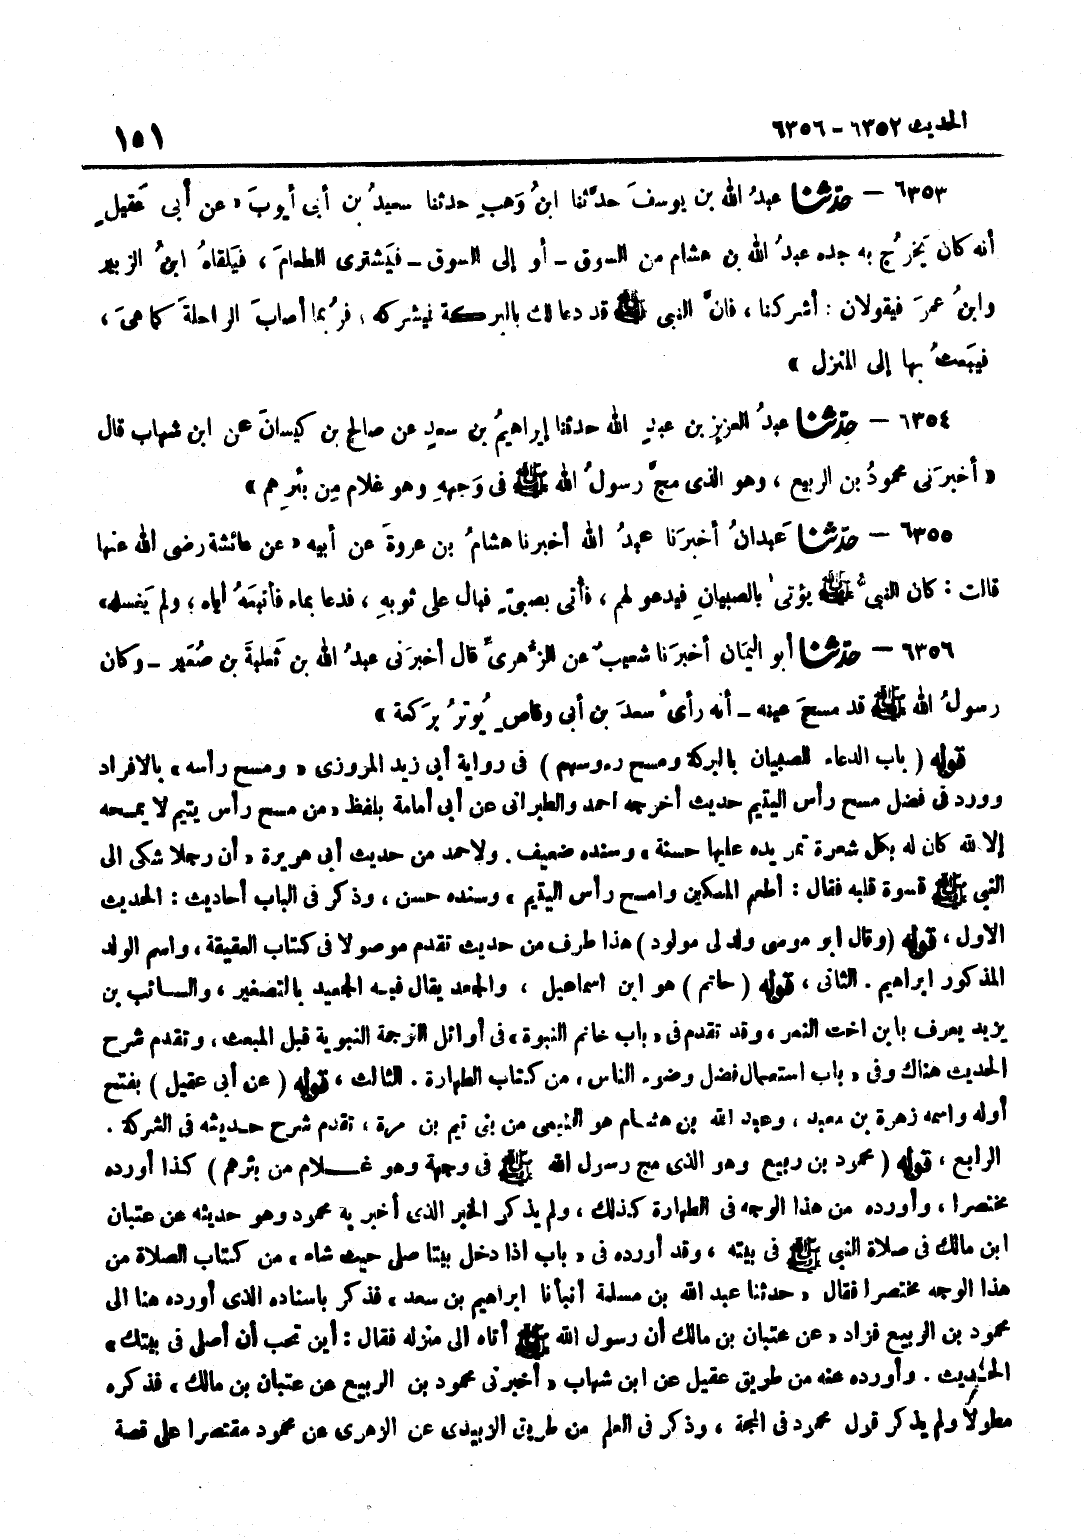 الحديث ٦٣٥٢ - ٦٣٥٦
١٥١
٦٣٥٣ - حدثنا عبدُ الله بن يوسفَ حدَّثنا ابنُ وَهبٍ حدثنا سعيدُ بن أبى أيوبَ « عن أبى عَقيلٍ
أنه كان يَخرُج به جده عبدُ الله بن هشام من السوق - أو إلى السوق - فيَشترى الطعامَ ، فيَلقاهُ ابنُ الزبير
وابنُ عمرَ فيقولان : أشركنا ، فانَّ النبى ﷺ قد دعا لك بالبركة فيشركه ، فرُبما أصابَ الراحلةَ كما هىَ ،
فيبَعثُ بها إلى المنزل »
٦٣٥٤ - حدثنا عبدُ العزيز بن عبدِ الله حدثنا إبراهيمُ بن سعدٍ عن صالح بن كيسانَ عن ابن شهاب قال
« أخبرَنى محمودُ بن الربيع ، وهو الذى مجَّ رسولُ الله ﷺ فى وَجههِ وهو غلام مِن بئرِهم »
٦٣٥٥ - حدثنا عَبدانُ أخبرَنا عبدُ الله أخبرنا هشامُ بن عروةَ عن أبيه « عن عائشة رضى الله عنها
قالت : كان النبىُّ ﷺ يؤتى بالصبيانِ فيدعو لهم ، فأُتى بصبىٍّ فبال على ثوبهِ ، فدعا بماء فأتبعَهُ أياه ؛ ولم يَغسله»
٦٣٥٦ - حدثنا أبو اليَمان أخبرَنا شعيبٌ عن الزُّهرىِّ قال أخبرَنى عبدُ الله بن ثَعلبةَ بن صُعَير - وكان
رسولُ الله ﷺ قد مسحَ عينه - أنه رأىٰ سعدَ بن أبى وقاصٍ يُوترُ برَكعة »
قوله ( باب الدعاء للصبيان بالبركة ومسح رءوسهم ) فى رواية أبى زيد المروزى « ومسح رأسه » بالافراد
وورد فى فضل مسح رأس اليتيم حديث أخرجه احمد والطبرانى عن أبى أمامة بلفظ « من مسح رأس يتيم لا يمسحه
إلا لله كان له بكل شعرة تمر يده عليها حسنة » وسنده ضعيف . ولاحمد من حديث أبى هريرة « أن رجلا شكى الى
النبى ﷺ قسوة قلبه فقال : أطعم المسكين وامسح رأس اليتيم » وسنده حسن ، وذكر فى الباب أحاديث : الحديث
الاول ، قوله ( وقال ابو موسى ولد لى مولود ) هذا طرف من حديث تقدم موصولا فى كتاب العقيقة ، واسم الولد
المذكور ابراهيم . الثانى ، قوله ( حاتم ) هو ابن اسماعيل ، والجعد يقال فيه الجعيد بالتصغير ، والسائب بن
يزيد يعرف بابن اخت النمر ، وقد تقدم فى « باب خاتم النبوة » فى أوائل الترجمة النبوية قبل المبعث ، وتقدم شرح
الحديث هناك وفى « باب استعمال فضل وضوء الناس ، من كتاب الطهارة . الثالث ، قوله ( عن أبى عقيل ) بفتح
أوله واسمه زهرة بن معبد ، وعبد الله بن هشام هو التيمى من بنى تيم بن مرة ، تقدم شرح حديثه فى الشركة .
الرابع ، قوله ( محمود بن ربيع وهو الذى مج رسول الله ﷺ فى وجهة وهو غلام من بئرهم ) كذا أورده
مختصرا ، وأورده من هذا الوجه فى الطهارة كذلك ، ولم يذكر الخبر الذى أخبر به محمود وهو حديثه عن عتبان
ابن مالك فى صلاة النبى ﷺ فى بيته ، وقد أورده فى « باب اذا دخل بيتا صلى حيث شاء » من كتاب الصلاة من
هذا الوجه مختصرا فقال « حدثنا عبد الله بن مسلمة أنبأنا ابراهيم بن سعد » فذكر باسناده الذى أورده هنا الى
محمود بن الربيع فزاد « عن عتبان بن مالك أن رسول الله ﷺ أتاه الى منزله فقال : أين تحب أن أصلى فى بيتك »
الحديث . وأورده عنه من طريق عقيل عن ابن شهاب « أخبرنى محمود بن الربيع عن عتبان بن مالك » فذكره
مطولا ولم يذكر قول محمود فى المجة ، وذكر فى العلم من طريق الزبيدى عن الزهرى عن محمود مقتصرا على قصة